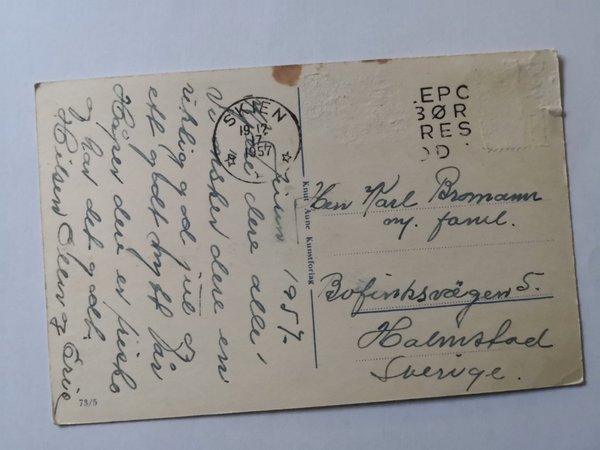 1957.
Kjære dere alle,
Vi ønsker dere en
riktig god jul og
ett godt nytt år
Håper dere er friske
og har det godt.
Hilsen
Eric
73/5
Knut Aune Kunstforlag
SKIEN
19 12
17
1957
EPC
BØR
RES
OD
Herr Karl Bromann
m. famil.
Bofinksvägen 5.
Halmstad
Sverige.